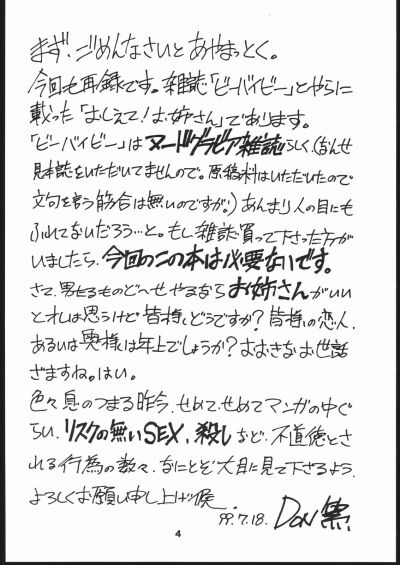 まず、ごめんなさいとあやまっとく。
今回も再録です。雑誌「ビーバイビー」とやらに
載った「おしえて!お姉さん」であります。
「ビーバイビー」はヌードグラビア雑誌らしく、(なんせ
見本誌をいただいてませんので。原稿料はいただいたので
文句を言う筋合は無いのですが。)あんまり人の目にも
ふれてないだろう…と。もし、雑誌買って下さった方が
いましたら、今回のこの本は必要ないです。
さて、男たるものど〜せやるならお姉さんがいい
とオレは思うけど皆様、どうですか?皆様の恋人、
あるいは奥様は年上でしょうか?おおきなお世話
ざますね。はい。
色々息のつまる昨今、せめて、せめてマンガの中ぐ
らい、リスクの無いSEX、殺しなど、不道徳とさ
れる行為の数々、なにとぞ大目に見て下さるよう、
よろしくお願い申し上げ候。
99.7.18. DON
4